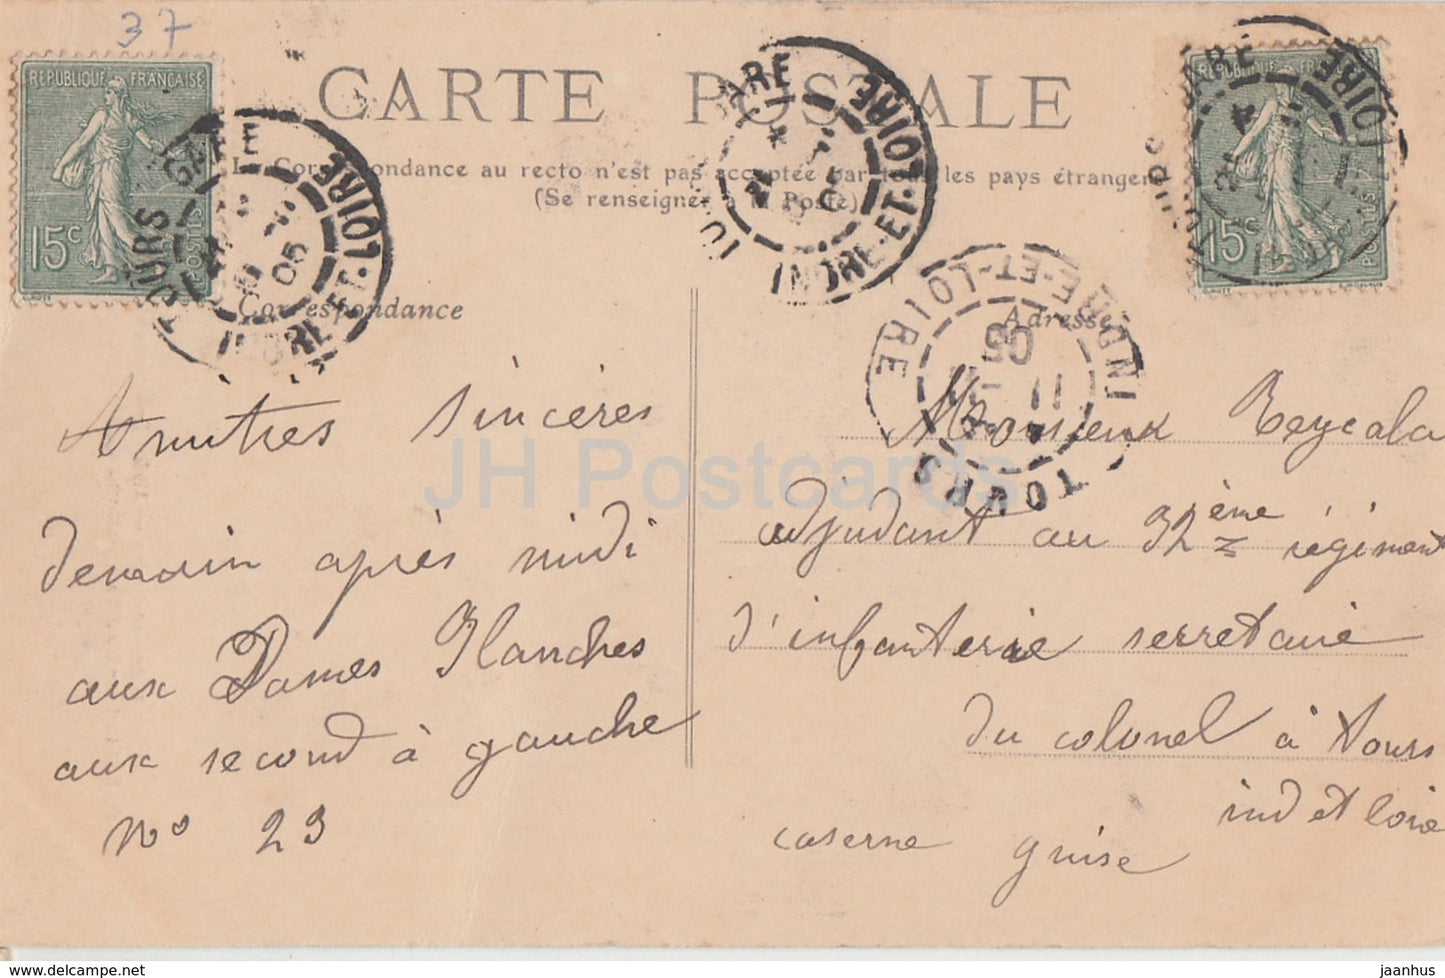 37
REPUBLIQUE FRANÇAISE
15c
POSTES
CARTE POSTALE
La Correspondance au recto n'est pas acceptée par tous les pays étrangers
(Se renseigner à la Poste)
TOURS GARE
INDRE-ET-LOIRE
05
TOURS GARE
INDRE-ET-LOIRE
05
REPUBLIQUE FRANÇAISE
15c
POSTES
GARE
LOIRE
TOURS
INDRE-ET-LOIRE
11
05
Correspondance
Amitres sincères
demain après midi
aux Dames Blanches
aux second à gauche
No 23
Adresse
Monsieur Reycala
adjudant au 32ème régiment
d'infanterie serretaire
du colonel à Tours
ind et loire
caserne guise
JH Postcards
jaanhus